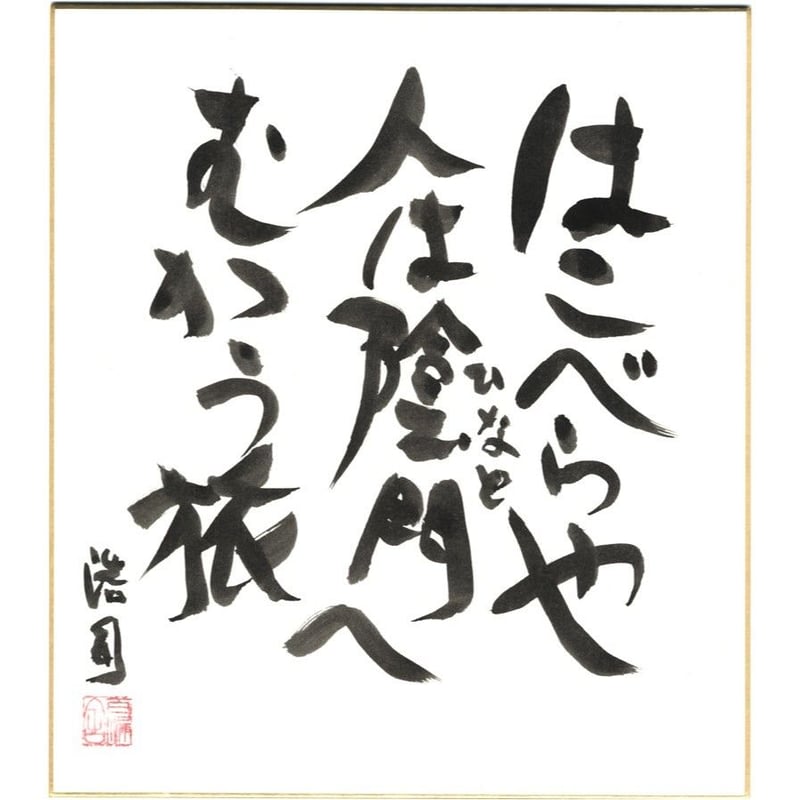 はこべらや
人は陰門へ
ひなと
むかう旅
浩司